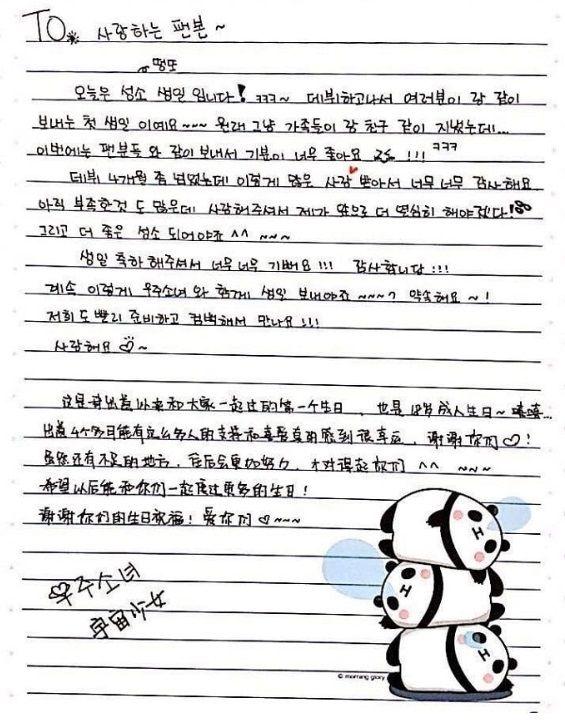 TO. 사랑하는 팬분~
땡또
오늘은 성소 생일 입니다! ㅋㅋㅋ~ 데뷔하고나서 여러분이 랑 같이
보내는 첫 생일 이예요~~~ 원래 그냥 가족들이 랑 친구 같이 지냈는데...
이번에는 팬분들 와 같이 보내서 기분이 너무 좋아요 !!! ㅋㅋㅋ
데뷔 4개월 좀 넘었는데 이렇게 많은 사랑 받아서 너무 너무 감사해요
아직 부족한것 도 많은데 사랑해주셔서 제가 앞으로 더 열심히 해야겠다!
그리고 더 좋은 성소 되어야죠 ^^ ~~~
생일 축하 해주셔서 너무 너무 기뻐요 !!! 감사합니당 :!!
계속 이렇게 우주소녀 와 함께 생일 보내야죠 ~~~? 약속해요 ~!
저희도 빨리 준비하고 컴백해서 만나요 !!!
사랑해요 ♡~
这是我出道以来和大家一起过的第一个生日，也是18岁成人生日~ 嘻嘻...
出道4个多月能有这么多人的支持和喜爱真的感到很幸运，谢谢你们♡!
虽然还有不足的地方，往后会更加努力，才对得起你们 ^^ ~~~
希望以后能和你们一起度过更多的生日!
谢谢你们的生日祝福! 爱你们 ♡~~~
우주소녀
宇宙少女
© morning glory